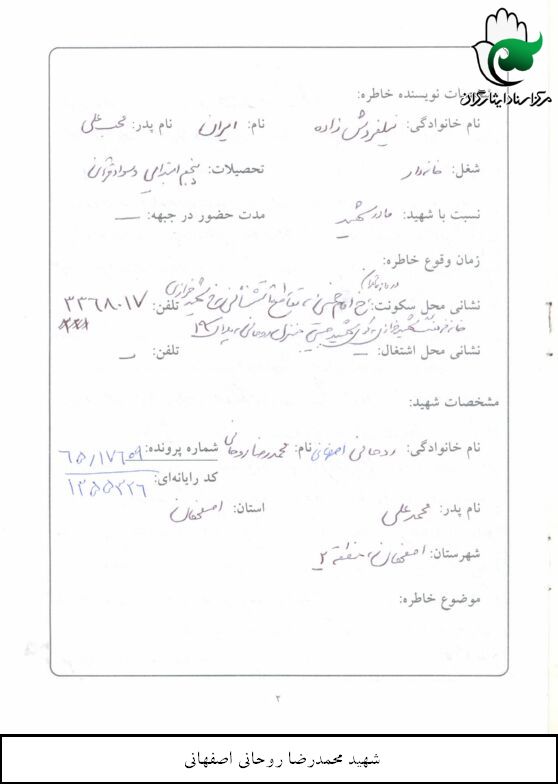 مرکز اسناد ایثارگران
مشخصات نویسنده خاطره:
نام خانوادگی: نیلفروش زاده نام: ایران نام پدر: محبعلی
شغل: خانه‌دار تحصیلات: پنجم ابتدایی و سواد قرآن
نسبت با شهید: مادر شهید مدت حضور در جبهه: —
زمان وقوع خاطره:
نشانی محل سکونت: خ امام خمینی، تلفن: ۳۳۶۸۰۱۷
منزل روحانی، پلاک
نشانی محل اشتغال: — تلفن: —
مشخصات شهید:
نام خانوادگی: روحانی اصفهانی نام: محمدرضا روحانی شماره پرونده: ۶۵/۱۷۶۵۹
کد رایانه‌ای: ۱۳۵۵۳۲۶
نام پدر: محمدعلی استان: اصفهان
شهرستان: اصفهان، منطقه ۲
موضوع خاطره:
۲
شهید محمدرضا روحانی اصفهانی